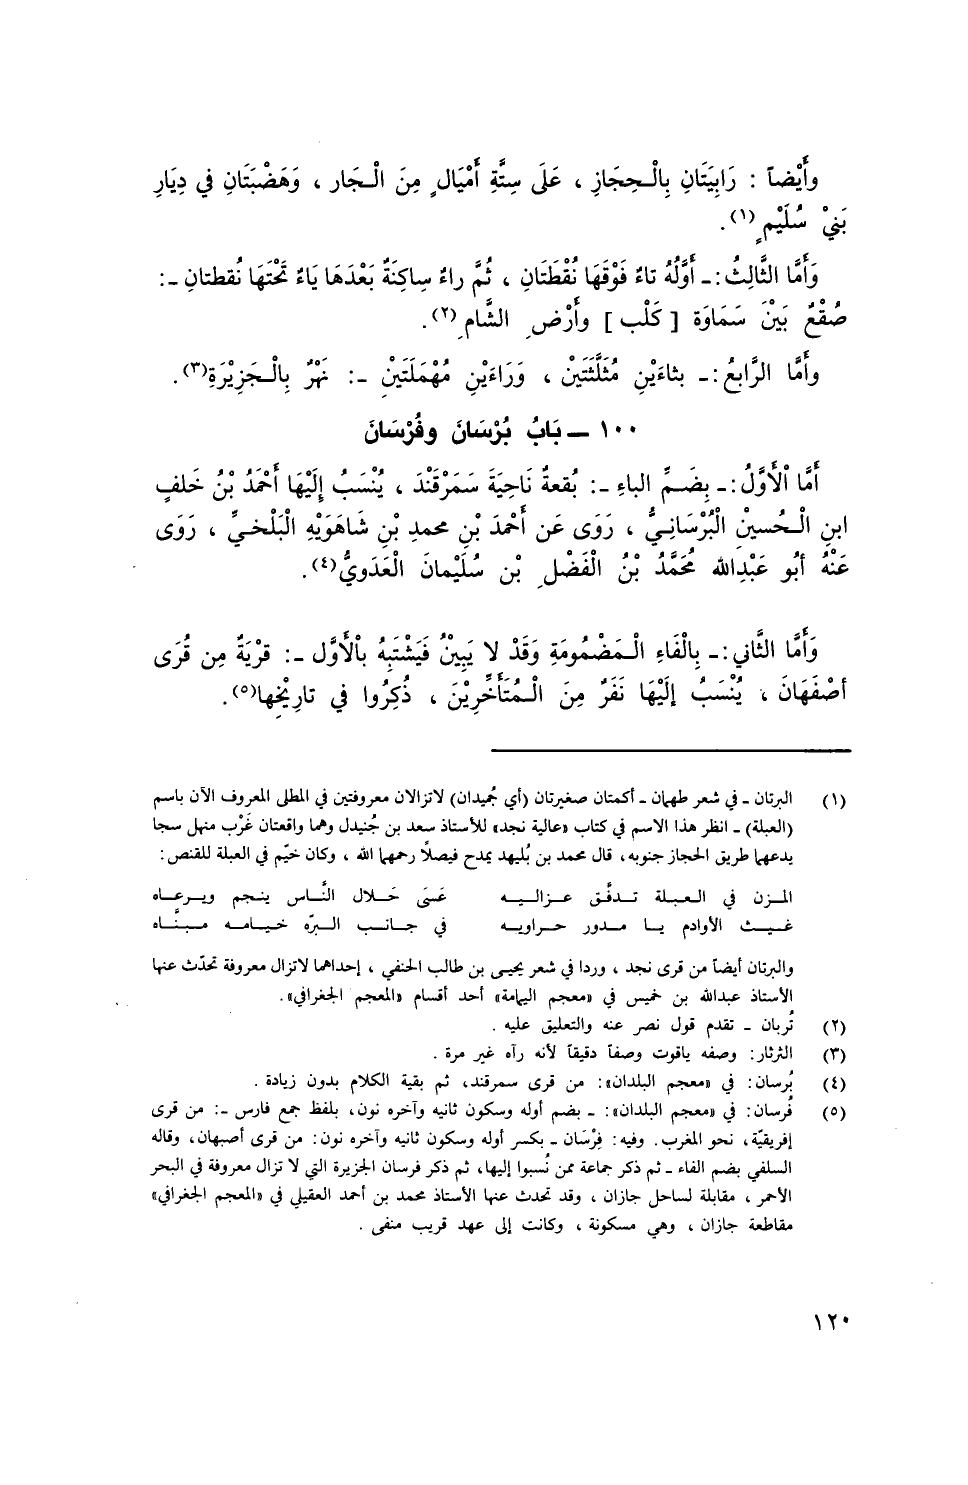 وأَيْضاً : رَابِيَتَانِ بِالْحِجَازِ ، عَلَى سِتَّةِ أَمْيَالٍ مِنَ الْجَار ، وَهَضْبَتَانِ في دِيَارِ
بَنيْ سُلَيْمٍ (١).
وَأَمَّا الثَّالِثُ :ـ أَوَّلُهُ تاءٌ فَوْقَهَا نُقْطَتَانِ ، ثُمَّ راءٌ ساكِنَةٌ بَعْدَهَا يَاءٌ تَحْتَهَا نُقطتانِ ـ:
صُقْعٌ بَيْنَ سَمَاوَة [ كَلْب ] وأَرْضِ الشَّامِ (٢).
وأَمَّا الرَّابِعُ :ـ بثاءَيْنِ مُثَلَّثَتَيْنْ ، وَرَاءَيْنِ مُهْمَلَتَيْنْ ـ: نَهْرٌ بِالْجَزِيْرَةِ (٣).
١٠٠ ــ بَابُ بُرْسَانَ وفُرْسَانَ
أَمَّا اْلأَوَّلُ :ـ بِضَمِّ الباءِ ـ: بُقعةٌ نَاحِيَةَ سَمَرْقَنْدَ ، يُنْسَبُ إِلَيْهَا أَحْمَدُ بْنُ خَلفٍ
ابنِ الْحُسيْنْ الْبُرْسَانِيُّ ، رَوَى عَن أَحْمَدَ بْنِ محمدِ بْنِ شَاهَوَيْهِ الْبَلْخيِّ ، رَوَى
عَنْهُ أَبُو عَبْدِالله مُحَمَّدُ بْنُ الْفَضْلِ بن سُلَيْمانَ الْعَدَويُّ (٤).
وَأَمَّا الثَّاني :ـ بِالْفَاءِ الْمَضْمُومَةِ وَقَدْ لا يَبِيْنُ فَيَشْتَبِهُ بِاْلأَوَّل ـ: قرْيَةٌ مِن قُرَى
أَصْفَهَانَ ، يُنْسَبُ إِلَيْهَا نَفَرٌ مِنَ الْمُتَأَخِّرِيْنَ ، ذُكِرُوا في تارِيْخِها (٥).
(١) البرتان ـ في شعر طهمان ـ أكمتان صغيرتان (أي جُميدان) لاتزالان معروفتين في المطلى المعروف الآن باسم
(العبلة) ـ انظر هذا الاسم في كتاب «عالية نجد» للأستاذ سعد بن جُنيدل وهما واقعتان غَرْب منهل سجا
يدعها طريق الحجاز جنوبه، قال محمد بن بُليهد يمدح فيصلاً رحمهما الله ، وكان خيّم في العبلة للقنص :
المزن في العبلة تدفَّق عزاليه عَسَى خَلال النَّاس ينجم ويرعاه
غيث الأوادم يا مدور حراويه في جانب البرّه خيامه مبنَّاه
والبرتان أيضاً من قرى نجد ، وردا في شعر يحيى بن طالب الحنفي ، إحداهما لاتزال معروفة تحدّث عنها
الأستاذ عبدالله بن خميس في «معجم اليمامة» أحد أقسام «المعجم الجغرافي».
(٢) تُربان ـ تقدم قول نصر عنه والتعليق عليه .
(٣) الثرثار : وصفه ياقوت وصفاً دقيقاً لأنه رآه غير مرة .
(٤) بُرسان : في «معجم البلدان»: من قرى سمرقند، ثم بقية الكلام بدون زيادة .
(٥) فُرسان : في «معجم البلدان»: ـ بضم أوله وسكون ثانيه وآخره نون، بلفظ جمع فارس ـ: من قرى
إفريقيّة، نحو المغرب. وفيه : فِرْسَان ـ بكسر أوله وسكون ثانيه وآخره نون : من قرى أصبهان، وقاله
السلفي بضم الفاء ـ ثم ذكر جماعة ممن نُسبوا إليها، ثم ذكر فرسان الجزيرة التي لا تزال معروفة في البحر
الأحمر ، مقابلة لساحل جازان ، وقد تحدث عنها الأستاذ محمد بن أحمد العقيلي في «المعجم الجغرافي»
مقاطعة جازان ، وهي مسكونة ، وكانت إلى عهد قريب منفى .
١٢٠